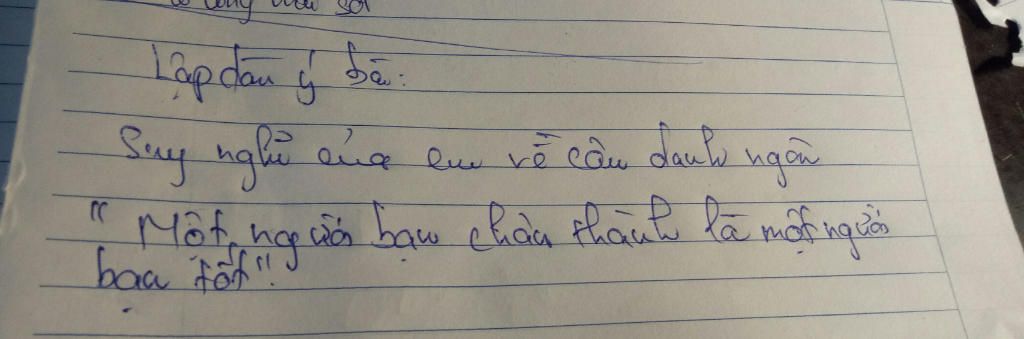 Lập dàn ý bài:
Suy nghĩ của em về câu danh ngôn
"Một người bạn chân thành là một người
bạn tốt".